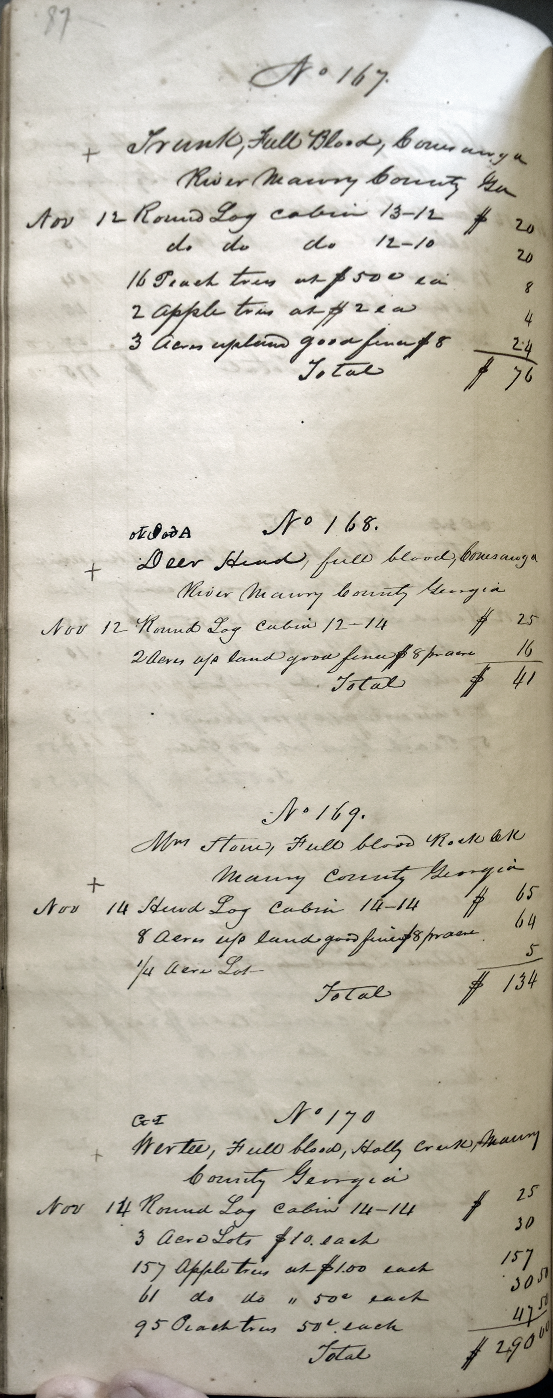 87
No 167.
+ Trunk, Full Blood, Conesauga
River Maury County Ga
Nov 12 Round Log cabin 13-12 $ 20
do do do 12-10 20
16 Peach trees at $ 50c ea 8
2 Apple trees at $ 2 ea 4
3 Acres upland good fence $8 24
Total $ 76
No 168.
+ Deer Head, full blood, Conesauga
River Maury County Georgia
Nov 12 Round Log cabin 12-14 $ 25
2 Acres up land good fence $8 pr acre 16
Total $ 41
No 169.
Mrs Stone, Full blood Rock Ck
+ Maury County Georgia
Nov 14 Hewd Log cabin 14-14 $ 65
8 Acres up land good fence $8 pr acre 64
1/4 Acre Lot 5
Total $ 134
No 170
+ Wertee, Full blood, Holly Creek, Maury
County Georgia
Nov 14 Round Log cabin 14-14 $ 25
3 Acre Lots $10. each 30
157 Apple trees at $1.00 each 157
61 do do " 50c each 30 50
95 Peach trees 50c each 47 50
Total $ 290 00